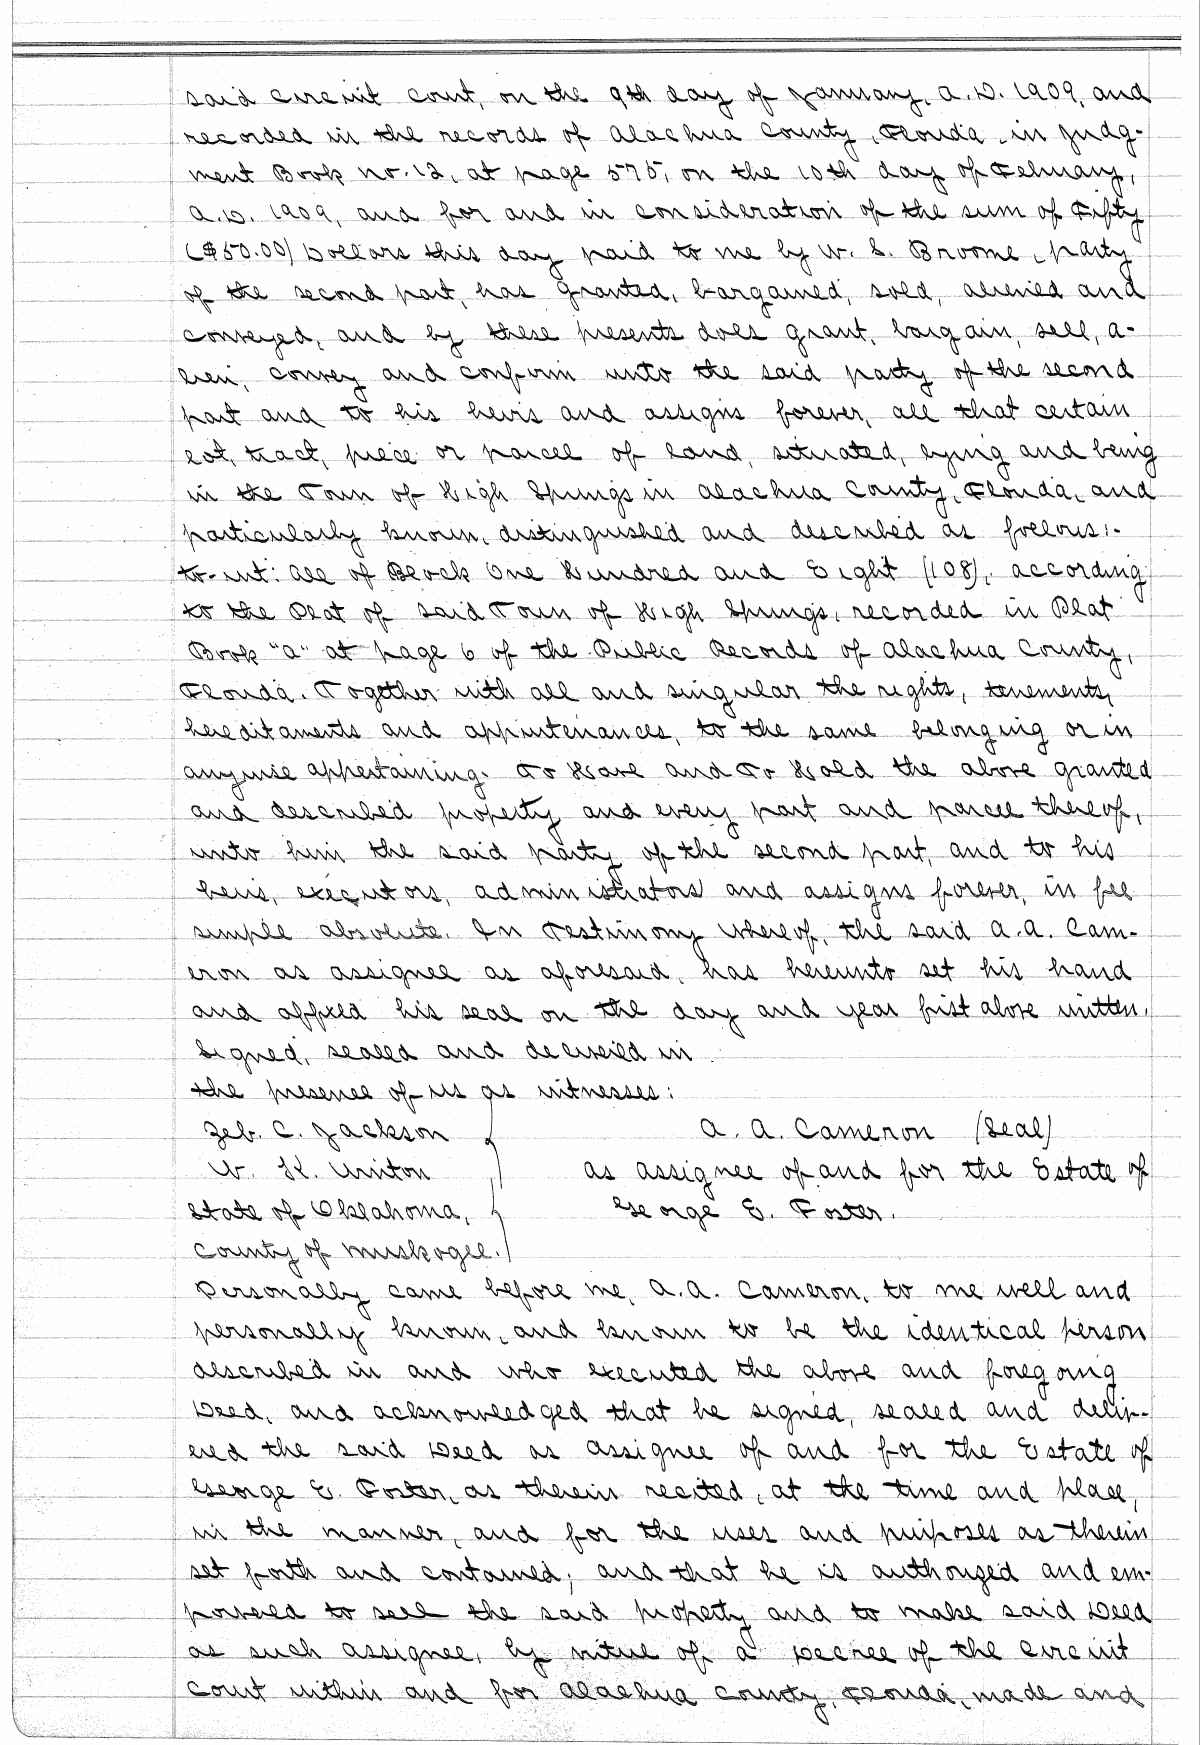 said circuit court, on the 9th day of January, A.D. 1909, and
recorded in the records of Alachua County, Florida, in Judg-
ment Book no. 12, at page 575, on the 10th day of February,
A.D. 1909, and for and in consideration of the sum of Fifty
($50.00) Dollars this day paid to me by W. S. Broome, party
of the second part, has granted, bargained, sold, aliened and
conveyed, and by these presents does grant, bargain, sell, a-
lien, convey and confirm unto the said party of the second
part and to his heirs and assigns forever, all that certain
lot, tract, piece or parcel of land, situated, lying and being
in the Town of High Springs in Alachua County, Florida, and
particularly known, distinguished and described as follows:-
to-wit: All of Block One Hundred and Eight (108), according
to the Plat of said Town of High Springs, recorded in Plat
Book "A" at page 6 of the Public Records of Alachua County,
Florida. Together with all and singular the rights, tenements,
hereditaments and appurtenances, to the same belonging or in
anywise appertaining. To Have and To Hold the above granted
and described property and every part and parcel thereof,
unto him the said party of the second part, and to his
heirs, executors, administrators and assigns forever, in fee
simple absolute. In Testimony Whereof, the said A.A. Cam-
eron as assignee as aforesaid, has hereunto set his hand
and affixed his seal on the day and year first above written.
Signed, sealed and delivered in
the presence of us as witnesses:
Zeb. C. Jackson A. A. Cameron (Seal)
W. K. as assignee of and for the Estate of
State of Oklahoma, George E. Foster.
County of Muskogee.
Personally came before me, A.A. Cameron, to me well and
personally known, and known to be the identical person
described in and who executed the above and foregoing
Deed, and acknowledged that he signed, sealed and deliv-
ered the said Deed as assignee of and for the Estate of
George E. Foster, as therein recited, at the time and place,
in the manner, and for the uses and purposes as therein
set forth and contained; and that he is authorized and em-
powered to sell the said property and to make said Deed
as such assignee, by virtue of a Decree of the Circuit
Court within and for Alachua County, Florida, made and